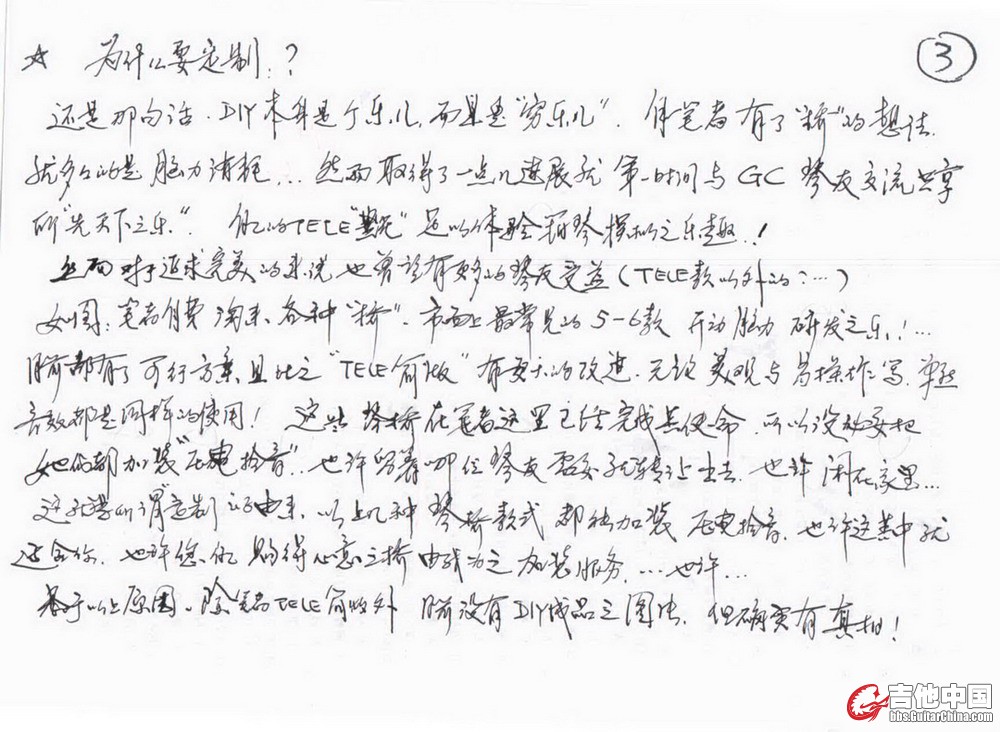 ③
☆ 为什么要定制:?
还是那句话.DIY本身是个乐儿,而且是"穷乐儿".自笔者有了"桥"的想法.
就多的是脑力消耗...然而取得了一点儿进展就第一时间与GC琴友交流共享
所"先天下之乐." 但的TELE 足以体验用琴模拟之乐趣.!
然而对于追求完美的来说也曾设有更多的琴友受益(TELE款以外的:...)
如图:笔者自费淘来各种"桥".市面上最常见的5-6款 开动脑力研发之乐.!...
目前都有了可行方案,且比之"TELE简版"有更大的改进.无论美观与易操作.
音效都是同样的使用! 这些琴桥在笔者这里已经完成其使命.所以没必要把
她们都加装"压电拾音".也许留着哪位琴友需要就转让出去.也许闲在家里...
这就是所谓"定制"的由来.以上几种琴桥款式都能加装压电拾音.也许这其中就
适合你.也许您能购得心意之桥由我为之加装服务....也许...
基于以上原因.除笔者TELE简版外 目前没有DIY成品之图片.但确实有真相!
吉他中国
bbs.GuitarChina.com